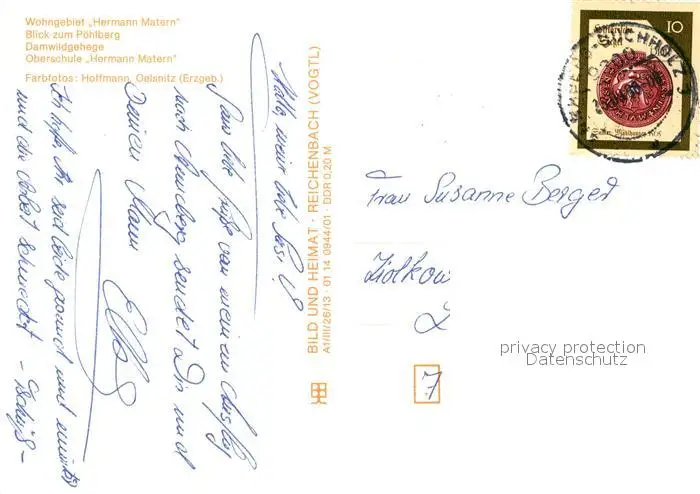 Wohngebiet „Hermann Matern"
Blick zum Pöhlberg
Damwildgehege
Oberschule „Hermann Matern"
Farbfotos: Hoffmann, Oelsnitz (Erzgeb.)
Hallo, meine liebe Susi!
Ganz liebe Grüße von meinem Ausflug
nach Annaberg sendet Dir und
Deinem Mann
Ich hoffe, Ihr seid beide gesund und munter
und die Arbeit schmeckt –
BILD UND HEIMAT · REICHENBACH (VOGTL)
A1/III/26/13 · 01 14 0944/01 · DDR 0,20 M
10
BUCHHOLZ 3
9300
Frau Susanne Berger
Ziolkow
7
privacy protection
Datenschutz